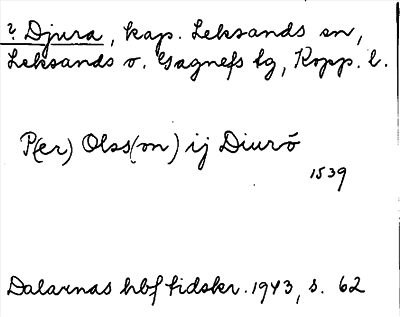 ? Djura, kap. Leksands sn,
Leksands o. Gagnefs tg, Kopp. l.
P(er) Olss(on) ij Diurö
1539
Dalarnas hbf tidskr. 1943, s. 62